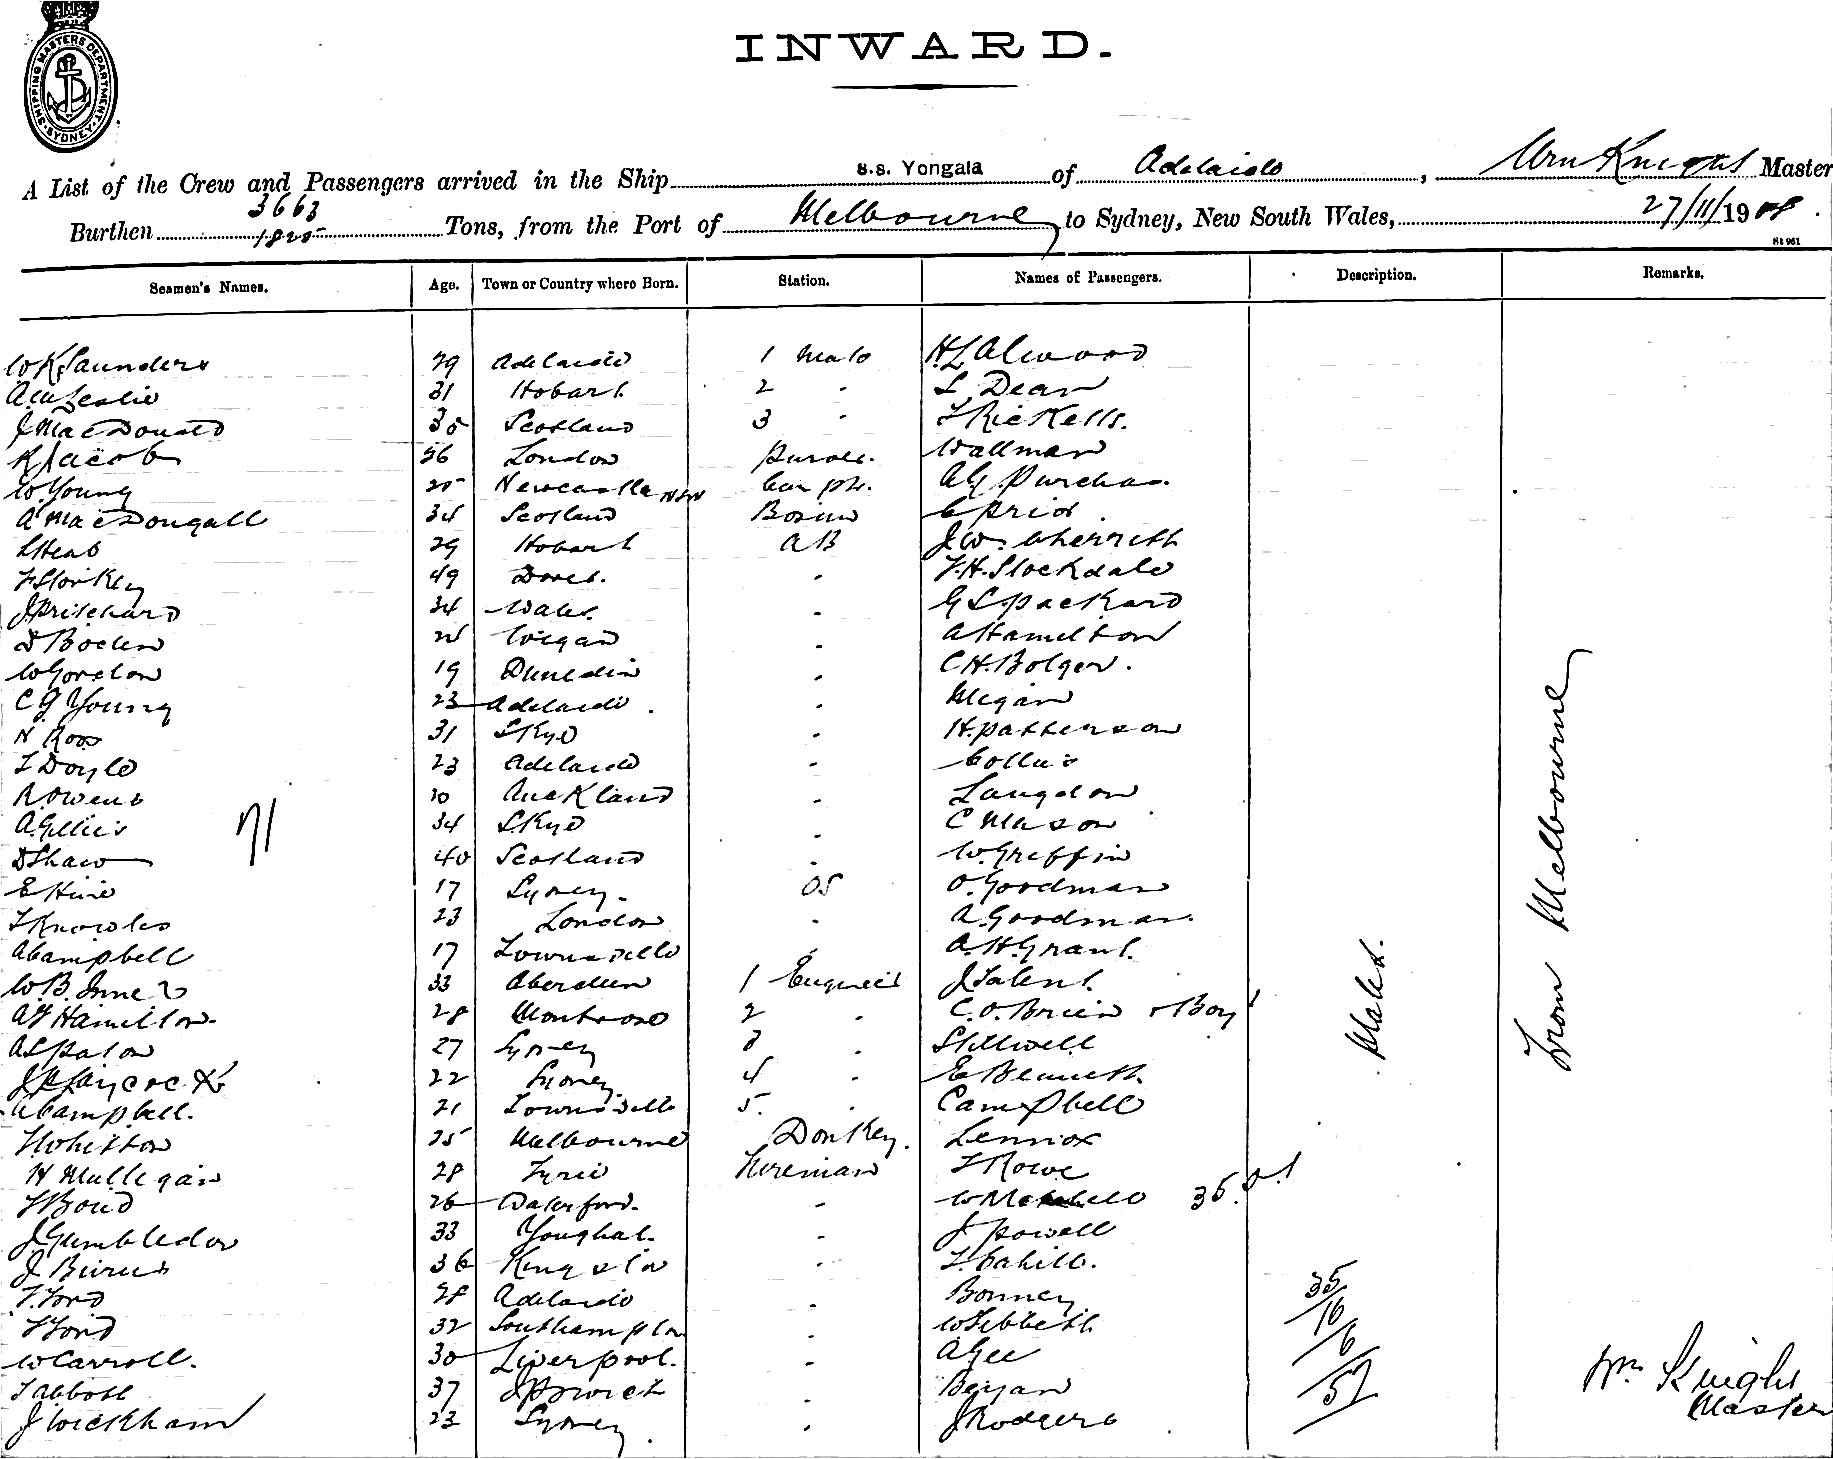 SHIPPING MASTERS DEPARTMENT · SYDNEY ·
INWARD.
A List of the Crew and Passengers arrived in the Ship s.s. Yongala of Adelaide, Wm Knight Master
Burthen 3663 Tons, from the Port of Melbourne to Sydney, New South Wales, 27/11/1908.
1825
St 961
Seamen's Names. Age. Town or Country where Born. Station. Names of Passengers. Description. Remarks.
W K Saunders 29 Adelaide 1 Mate H L Alwood
Leslie 31 Hobart 2 " L Dean
J MacDonald 35 Scotland 3 " T Ricketts.
R Jacob London Purser. Wallman
W. Young Newcastle NSW Carptr. A G Purchas.
A MacDougall 34 Scotland Bosun
29 Hobart A B J. W. Wherrett
49 F. H. Stockdale
J Pritchard 34 Wales. " G L Packard
D Boden Wigan " A Hamilton
W Gordon 19 Dunedin " C H. Bolger.
C G Young 23 Adelaide. " Megan
N Ross 31 Skye " H. Patterson
T Doyle 23 Adelaide " Collins
R. Owens Auckland " Langdon
A. Gillies 34 Skye " C Mason
71
D Shaw 40 Scotland " W. Griffin
E Hine 17 Sydney. OS O. Goodman
T Knowles 23 London " A. Goodman.
A Campbell 17 Townsville A. H. Grant.
W. B. Innes 33 Aberdeen 1 Engineer J Talent.
A F Hamilton 28 Montrose 2 " C. O. Brien & Boy 1
A S Paton 27 Sydney 3 " Stillwell
J Laycock 22 Sydney 4 " E Bennett.
A Campbell. 21 Townsville 5. " Campbell
T Whitton Melbourne Donkey. Lennox
H Mulligan 28 Fireman T Rowe
T Boud 26 Waterford. "
J Gumbledon 33 Youghal. " J Powell
36 Kingston " T. Cahill.
T. Ford 28 Adelaide " Bonney
T Ford 32 Southampton " W Tibbett
W Carroll. 30 Liverpool. " A Gee
T Abbott 37 Ipswich " Bryan
J Wickham 23 Sydney. " J Rodgers
Males.
35
16
6
57
From Melbourne
Wm Knight
Master